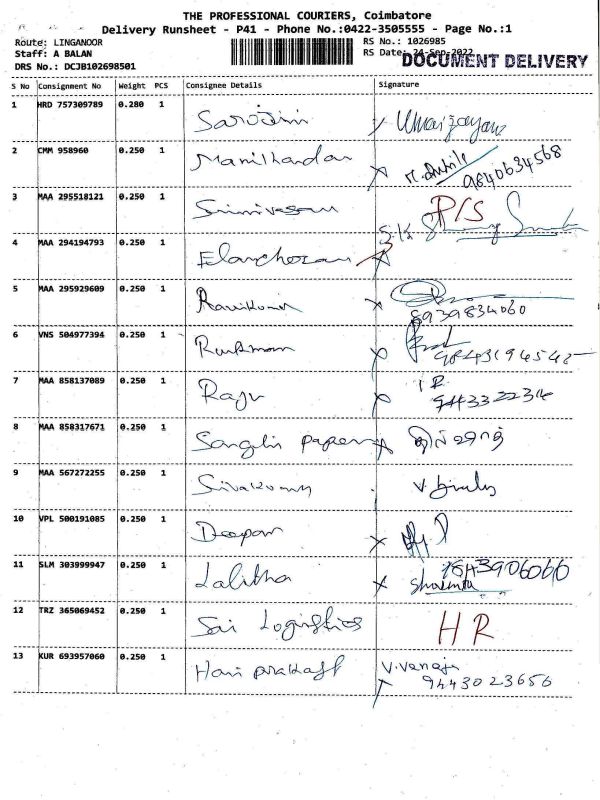 THE PROFESSIONAL COURIERS, Coimbatore
Delivery Runsheet - P41 - Phone No.:0422-3505555 - Page No.:1
Route: LINGANOOR
RS No.: 1026985
Staff: A BALAN
RS Date: 24-Sep-2022
DOCUMENT DELIVERY
DRS No.: DCJB102698501
S No Consignment No Weight PCS Consignee Details Signature
1 HRD 757309789 0.280 1 Sarojini
2 CMM 958960 0.250 1 Manikandan
9840634568
3 MAA 295518121 0.250 1 Srinivasan P/S
4 MAA 294194793 0.250 1 Elancheran
5 MAA 295929609 0.250 1 Ravikumar
8939834060
6 VNS 504977394 0.250 1 Rukman
7 MAA 858137089 0.250 1 Raju
9443322234
8 MAA 858317671 0.250 1
9 MAA 567272255 0.250 1 Sivakumar
10 VPL 500191085 0.250 1 Deepan
11 SLM 303999947 0.250 1 Lalitha
12 TRZ 365069452 0.250 1 Sai Logistics HR
13 KUR 693957060 0.250 1 Hari Prakash V. Vanaja
9443023656